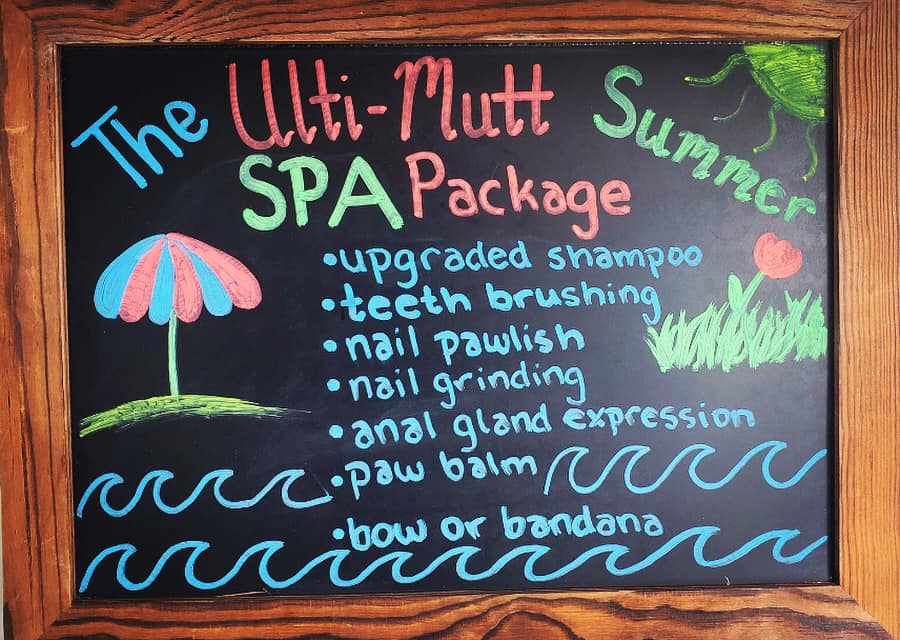 The Ulti-Mutt Summer
SPA Package
•upgraded shampoo
•teeth brushing
•nail pawlish
•nail grinding
•anal gland expression
•paw balm
•bow or bandana